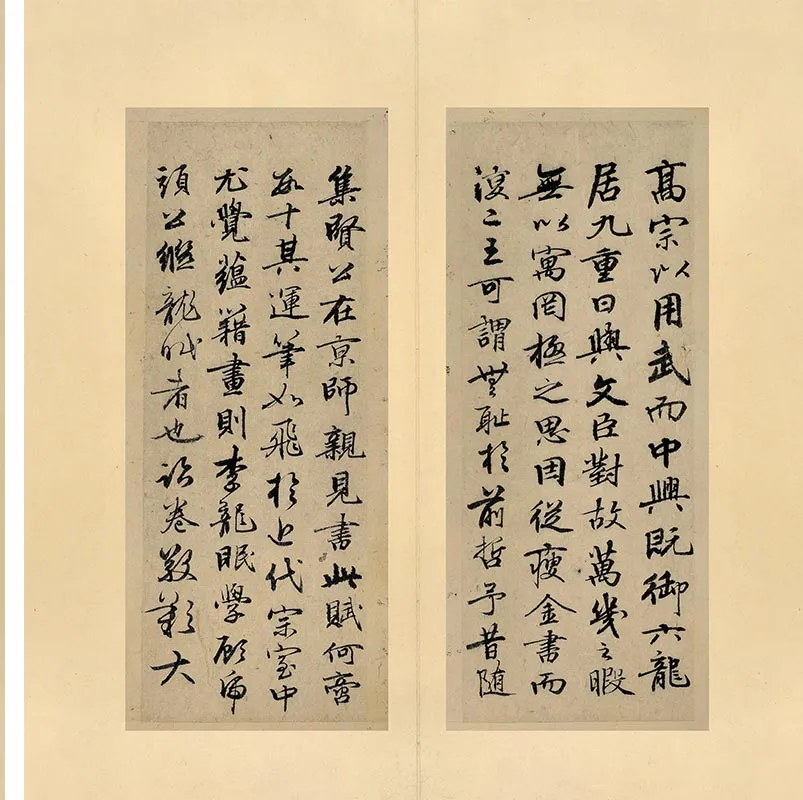 髙宗以用武而中興既御六龍
居九重日與文臣對故萬幾之暇
無以寓罔極之思因從瘦金書而
復二王可謂無恥於前哲予昔随
集賢公在京師親見書此賦何啻
數十其運筆如飛於近代宗室中
尤覺蘊藉畫則李龍眠學顧虎
頭公繼龍眠者也卷歎大